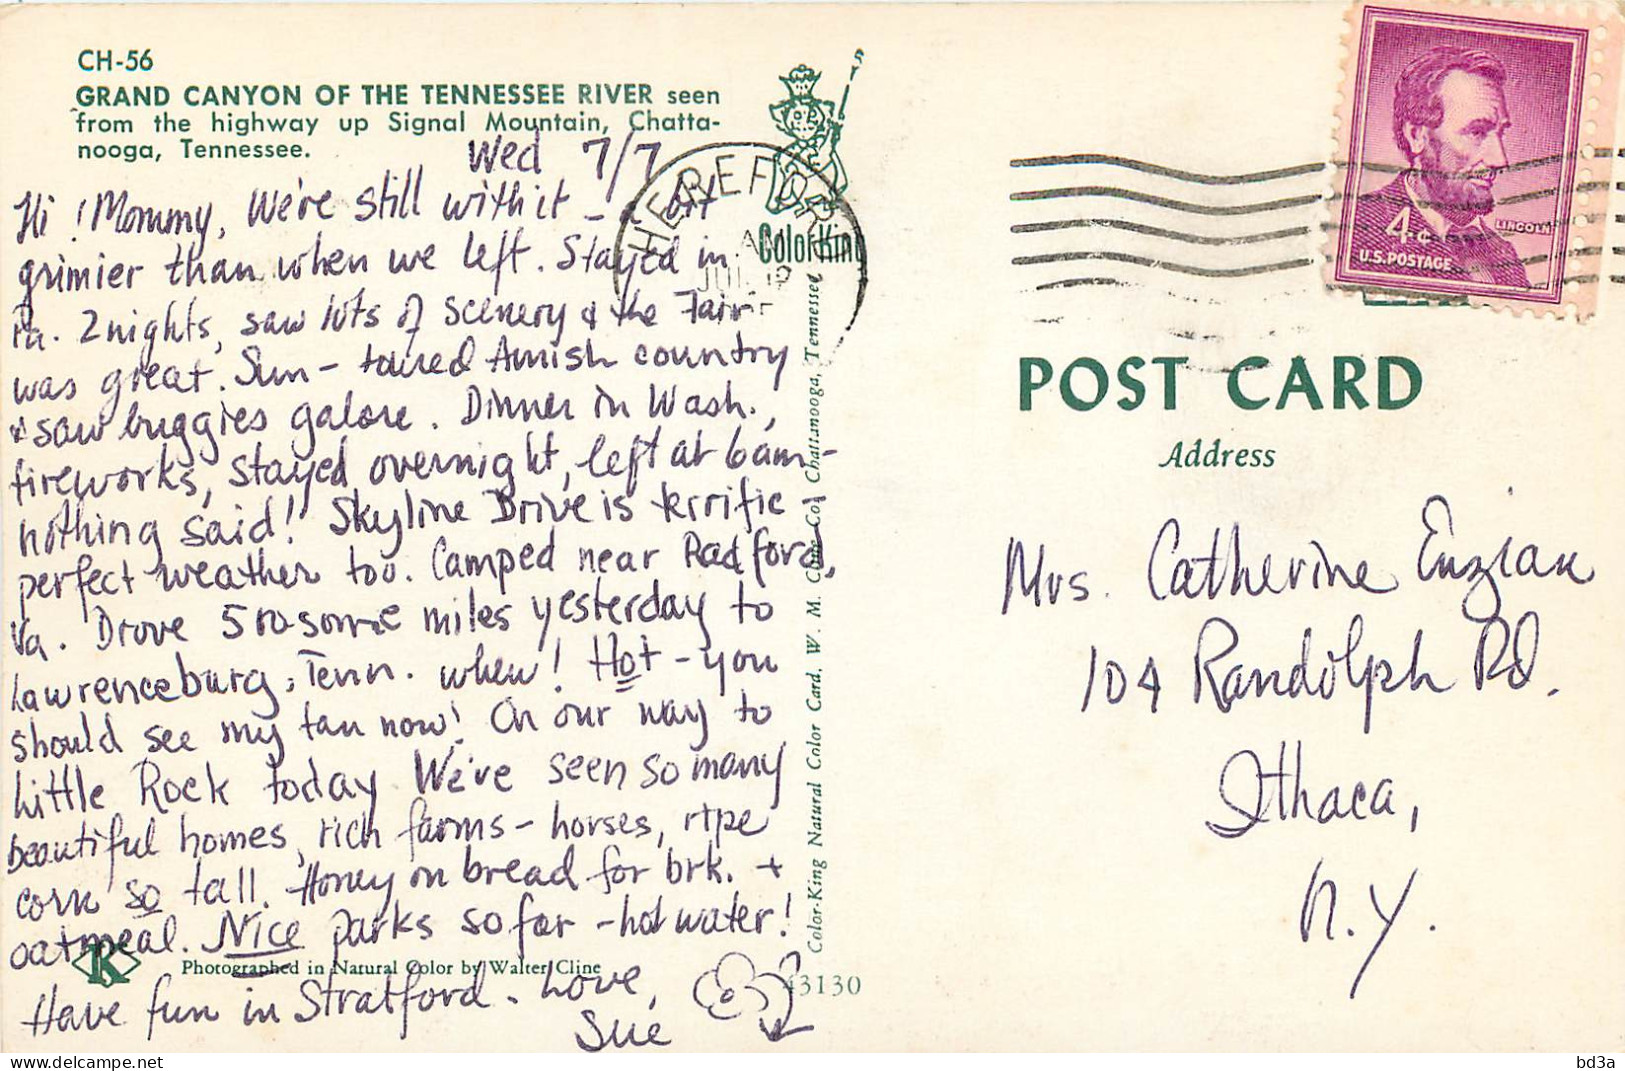 CH-56
GRAND CANYON OF THE TENNESSEE RIVER seen
from the highway up Signal Mountain, Chatta-
nooga, Tennessee.
Wed 7/7
Hi! Mommy, We're still with it - a bit
grimier than when we left. Stayed in
Pa. 2 nights, saw lots of scenery & the Fair
was great. Sun - toured Amish country
& saw buggies galore. Dinner in Wash.,
fireworks, stayed overnight, left at 6am -
nothing said! Skyline Drive is terrific
perfect weather too. Camped near Radford,
Va. Drove 500-some miles yesterday to
Lawrenceburg, Tenn. whew! Hot - you
should see my tan now! On our way to
Little Rock today. We've seen so many
beautiful homes, rich farms - horses, ripe
corn so tall. Honey on bread for brk. +
oatmeal. Nice parks so far - hot water!
Have fun in Stratford. Love,
Sue
K
Photographed in Natural Color by Walter Cline
43130
Color-King Natural Color Card, W. M. Cline Co., Chattanooga, Tennessee
ColorKing
HEREFORD
AM
JUL 12
4¢
LINCOLN
U.S. POSTAGE
POST CARD
Address
Mrs. Catherine Enzian
104 Randolph Rd.
Ithaca,
N.Y.
bd3a